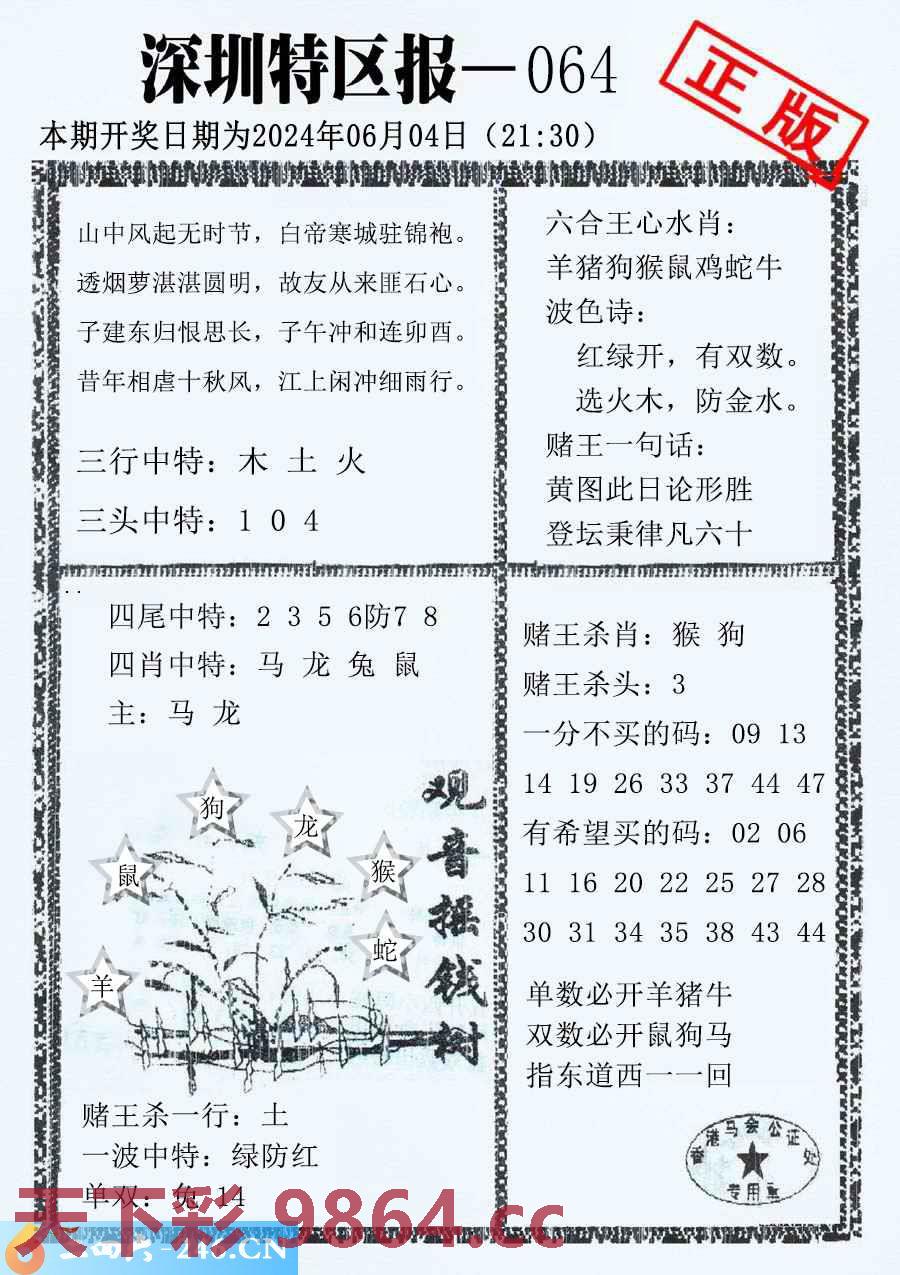 深圳特区报—064
正版
本期开奖日期为2024年06月04日（21:30）
山中风起无时节，白帝寒城驻锦袍。
透烟萝湛湛圆明，故友从来匪石心。
子建东归恨思长，子午冲和连卯酉。
昔年相虐十秋风，江上闲冲细雨行。
三行中特：木 土 火
三头中特：1 0 4
六合王心水肖：
羊猪狗猴鼠鸡蛇牛
波色诗：
红绿开，有双数。
选火木，防金水。
赌王一句话：
黄图此日论形胜
登坛秉律凡六十
四尾中特：2 3 5 6防7 8
四肖中特：马 龙 兔 鼠
主：马 龙
狗
龙
鼠
猴
蛇
羊
观音摇钱树
赌王杀一行：土
一波中特：绿防红
单双：兔 14
赌王杀肖：猴 狗
赌王杀头：3
一分不买的码：09 13
14 19 26 33 37 44 47
有希望买的码：02 06
11 16 20 22 25 27 28
30 31 34 35 38 43 44
单数必开羊猪牛
双数必开鼠狗马
指东道西一一回
香港马会公证处
专用章
天下彩 9864.cc